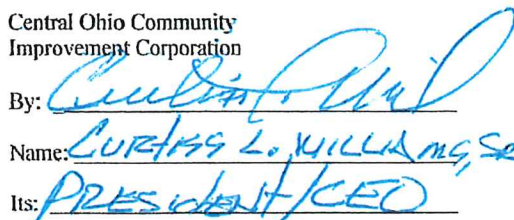 Central Ohio Community
Improvement Corporation
By:
Name: CURTISS L. WILLIAMS, SR
Its: PRESIDENT/CEO